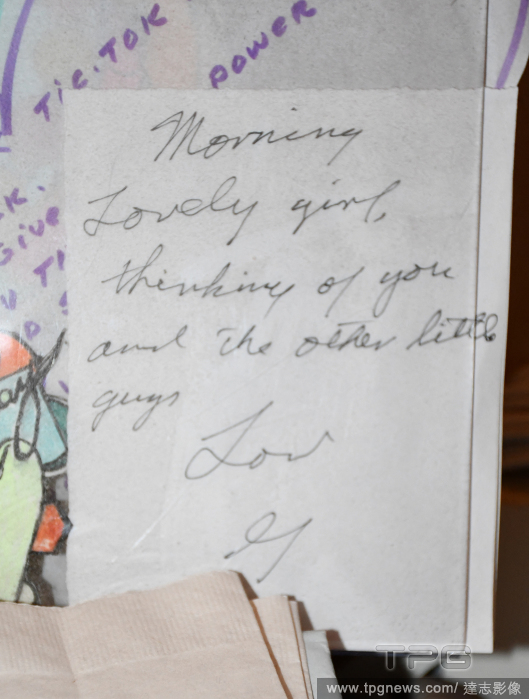 TIC.TOK
POWER
Morning
Lovely girl,
thinking of you
and the other little
guys
Love
G
TPG
www.tpgnews.com/ 達志影像